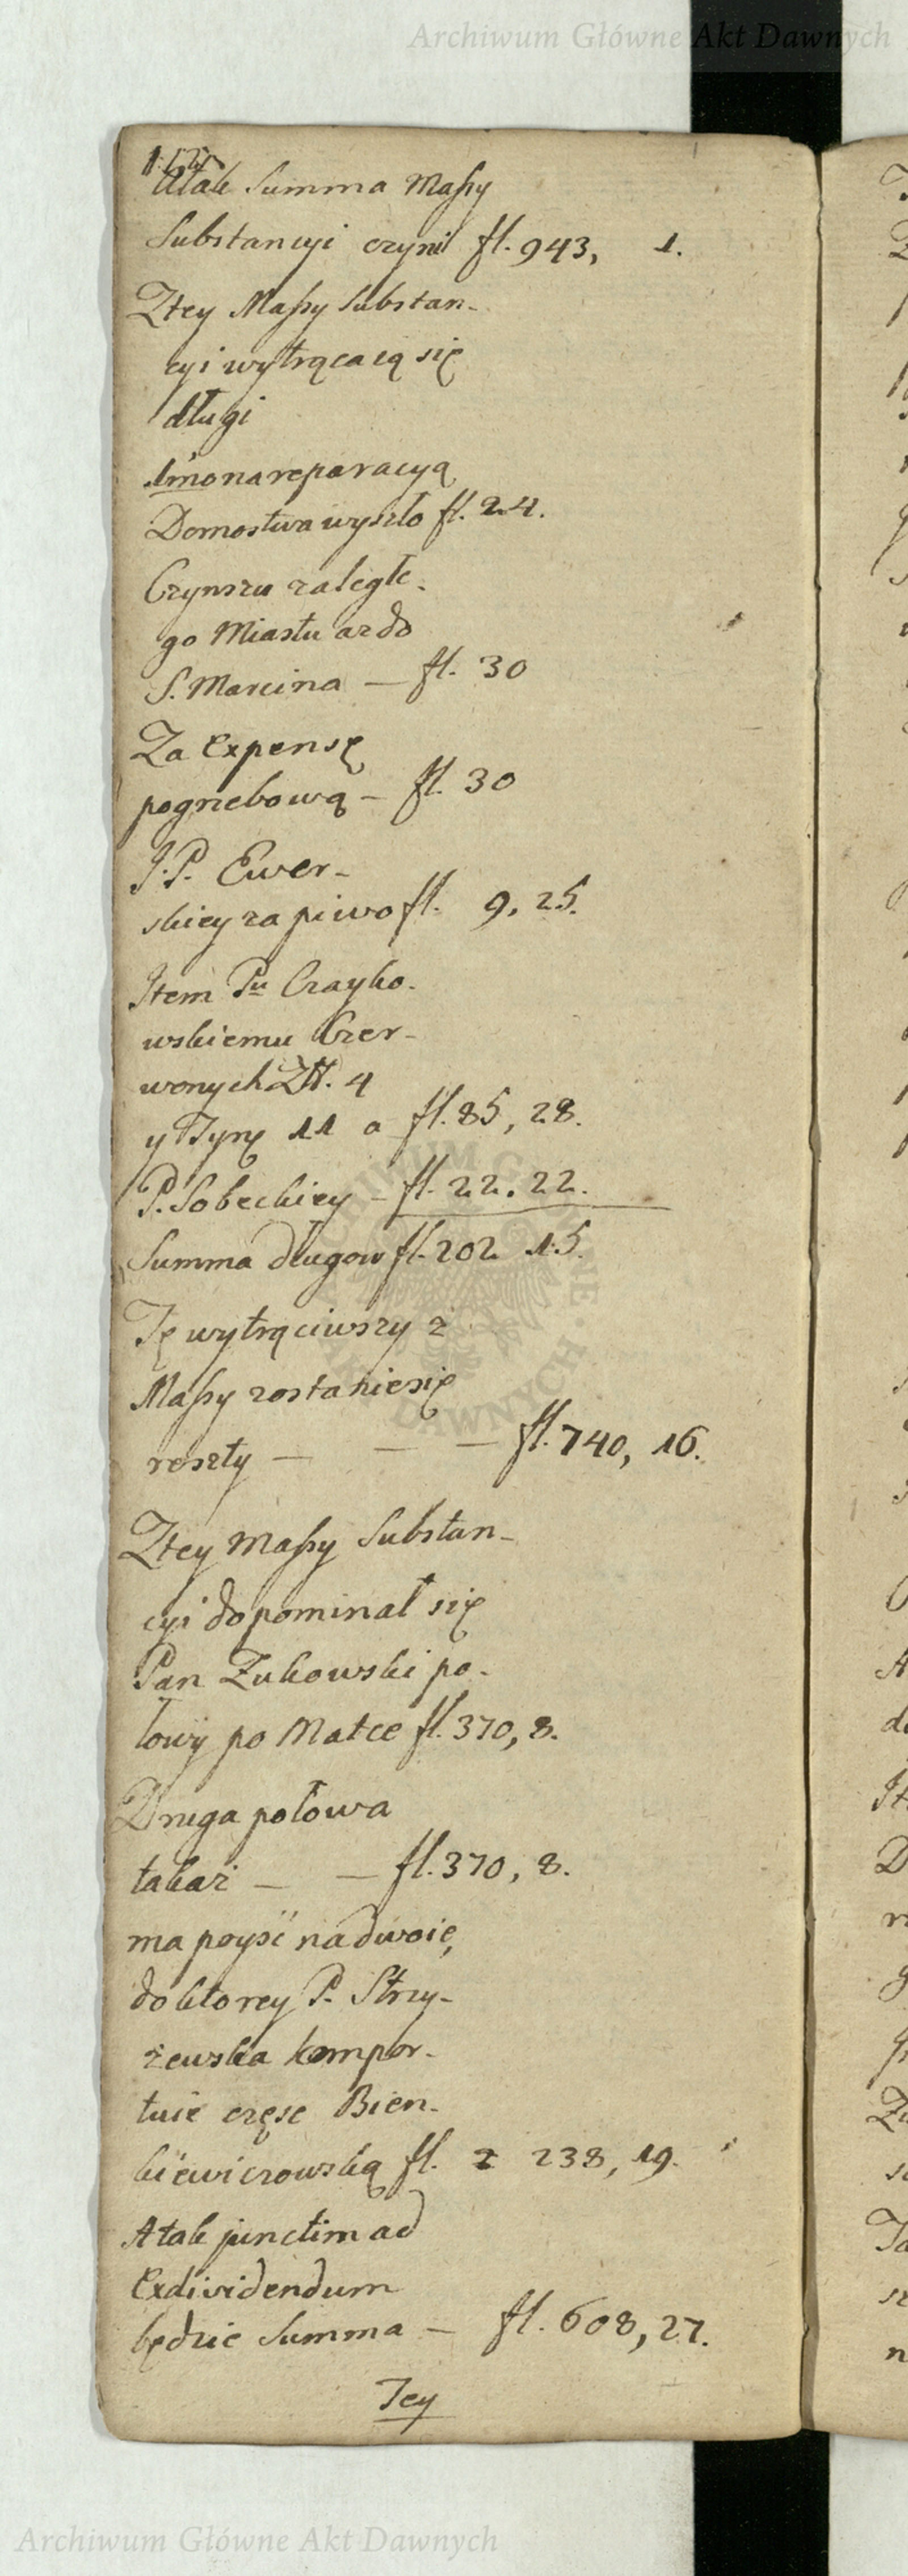 Archiwum Główne Akt Dawnych
Atak Summa Massy
Substancyi czyni fl. 943, 1.
Ztey Massy Substan-
cyi wytrącaią się
długi
1mo na reparacyą
Domostwa wyszło fl. 24.
Czynszu zaległe-
go Miastu az do
S. Marcina — fl. 30
Za Expensę
pogrzebową — fl. 30
J.P. Ewer-
skiey za piwo fl. 9, 25.
Item Pu Czayko-
wskiemu Czer-
wonych Złł. 4
y Tynf 11 a fl. 85, 28.
P. Sobeckiey — fl. 22. 22.
Summa długow fl. 202 15.
Tę wytrąciwszy z
Massy zostanie się
reszty — — — fl. 740, 16.
Ztey Massy Substan-
cyi dopominał się
Pan Zukowski po-
łowy po Matce fl. 370, 8.
Druga połowa
takaż — — fl. 370, 8.
ma poyść na dwoie,
do ktorey P. Strzy-
żewska kompor-
tuie częsc Bien-
kiewiczowską fl. 238, 19.
Atak junctim ad
Exdividendum
będzie Summa — fl. 608, 27.
Tey
Archiwum Główne Akt Dawnych